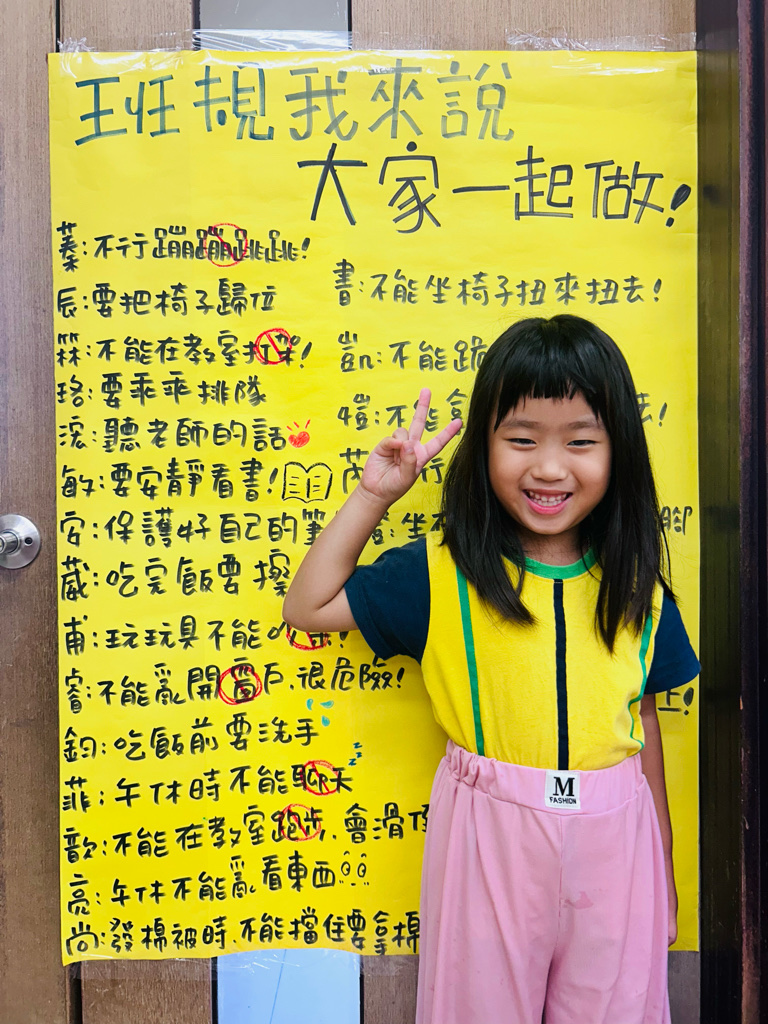 班規我來說
大家一起做!
蓁:不行蹦蹦跳跳!
辰:要把椅子歸位
霖:不能在教室打架!
珞:要乖乖排隊
浤:聽老師的話
敏:要安靜看書!
安:保護好自己的筆
葳:吃完飯要擦
甫:玩玩具不能
睿:不能亂開窗戶,很危險!
鈞:吃飯前要洗手
菲:午休時不能聊天
歆:不能在教室跑步,會滑倒
亮:午休不能亂看東西
尚:發棉被時,不能擋住要拿棉
書:不能坐椅子扭來扭去!
凱:不能跪
愷:不能拿 去!
芮 行
:坐 腳
上!
M
FASHION